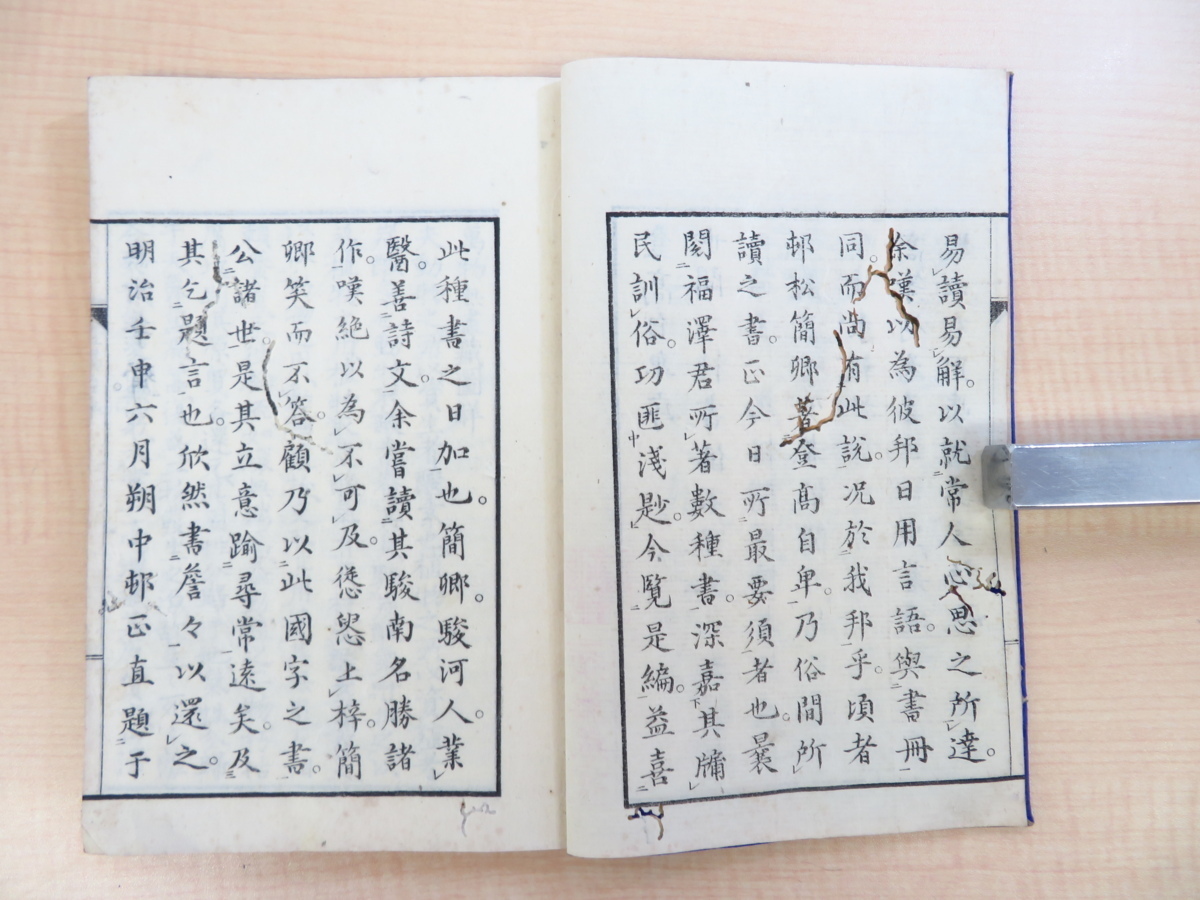 易讀易解。以就常人心思之所達。
余嘆以為彼邦日用言語。與書冊
同。而尚有此說。况於我邦乎。頃者
邨松簡卿著登高自卑。乃俗間所
讀之書。正今日所最要須者也。曩
閱福澤君所著數種書。深嘉其牖
民訓俗。功匪淺尟。今覽是編。益喜
此種書之日加也。簡卿。駿河人。業
醫。善詩文。余嘗讀其駿南名勝諸
作。嘆絶以為不可及。慫慂上梓。簡
卿笑而不答。顧乃以此國字之書。
公諸世。是其立意踰尋常遠矣。及
其乞題言也。欣然書詹々以還之。
明治壬申。六月朔中邨正直題于